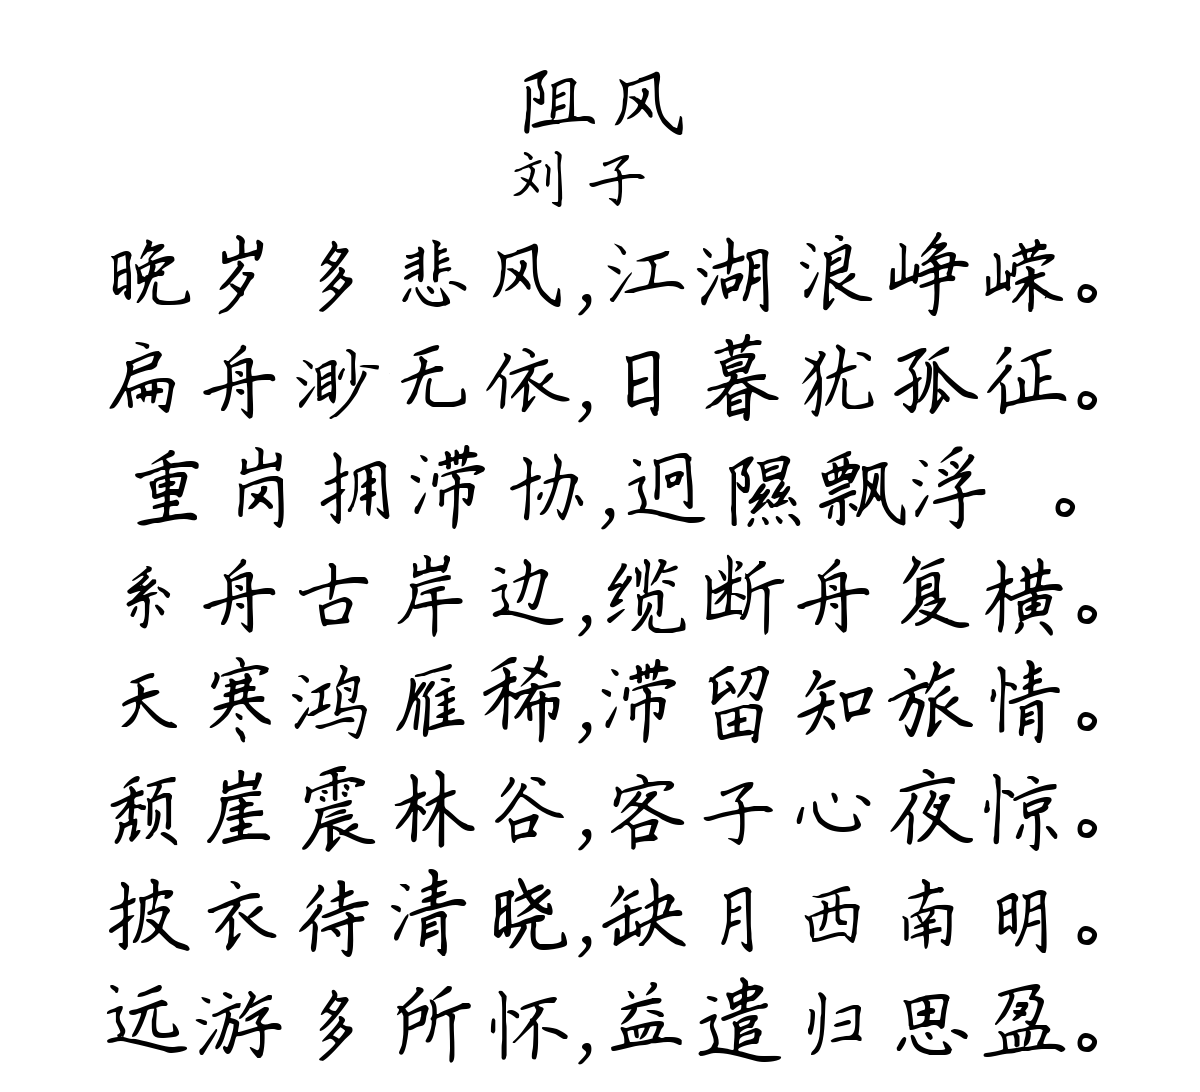 阻风
刘子
晚岁多悲风,江湖浪峥嵘。
扁舟渺无依,日暮犹孤征。
重岗拥滞协,迥隰飘浮 。
系舟古岸边,缆断舟复横。
天寒鸿雁稀,滞留知旅情。
颓崖震林谷,客子心夜惊。
披衣待清晓,缺月西南明。
远游多所怀,益遣归思盈。